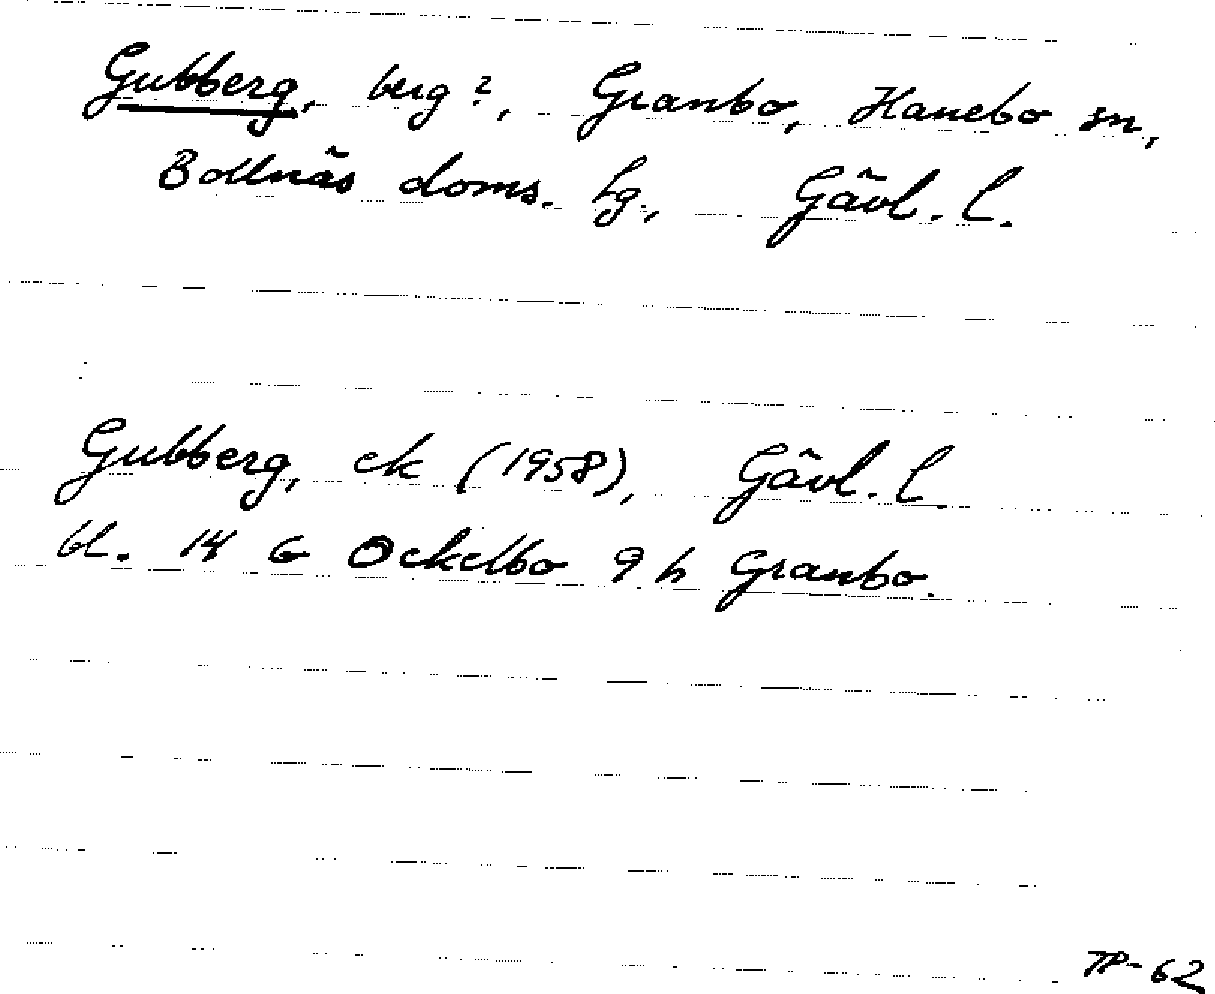 Gubberg, berg?, Granbo, Hanebo sn,
Bollnäs doms. hg., Gävl. l.
Gubberg, ek (1958), Gävl. l.
bl. 14 G Ockelbo 9 h Granbo.
TP-62